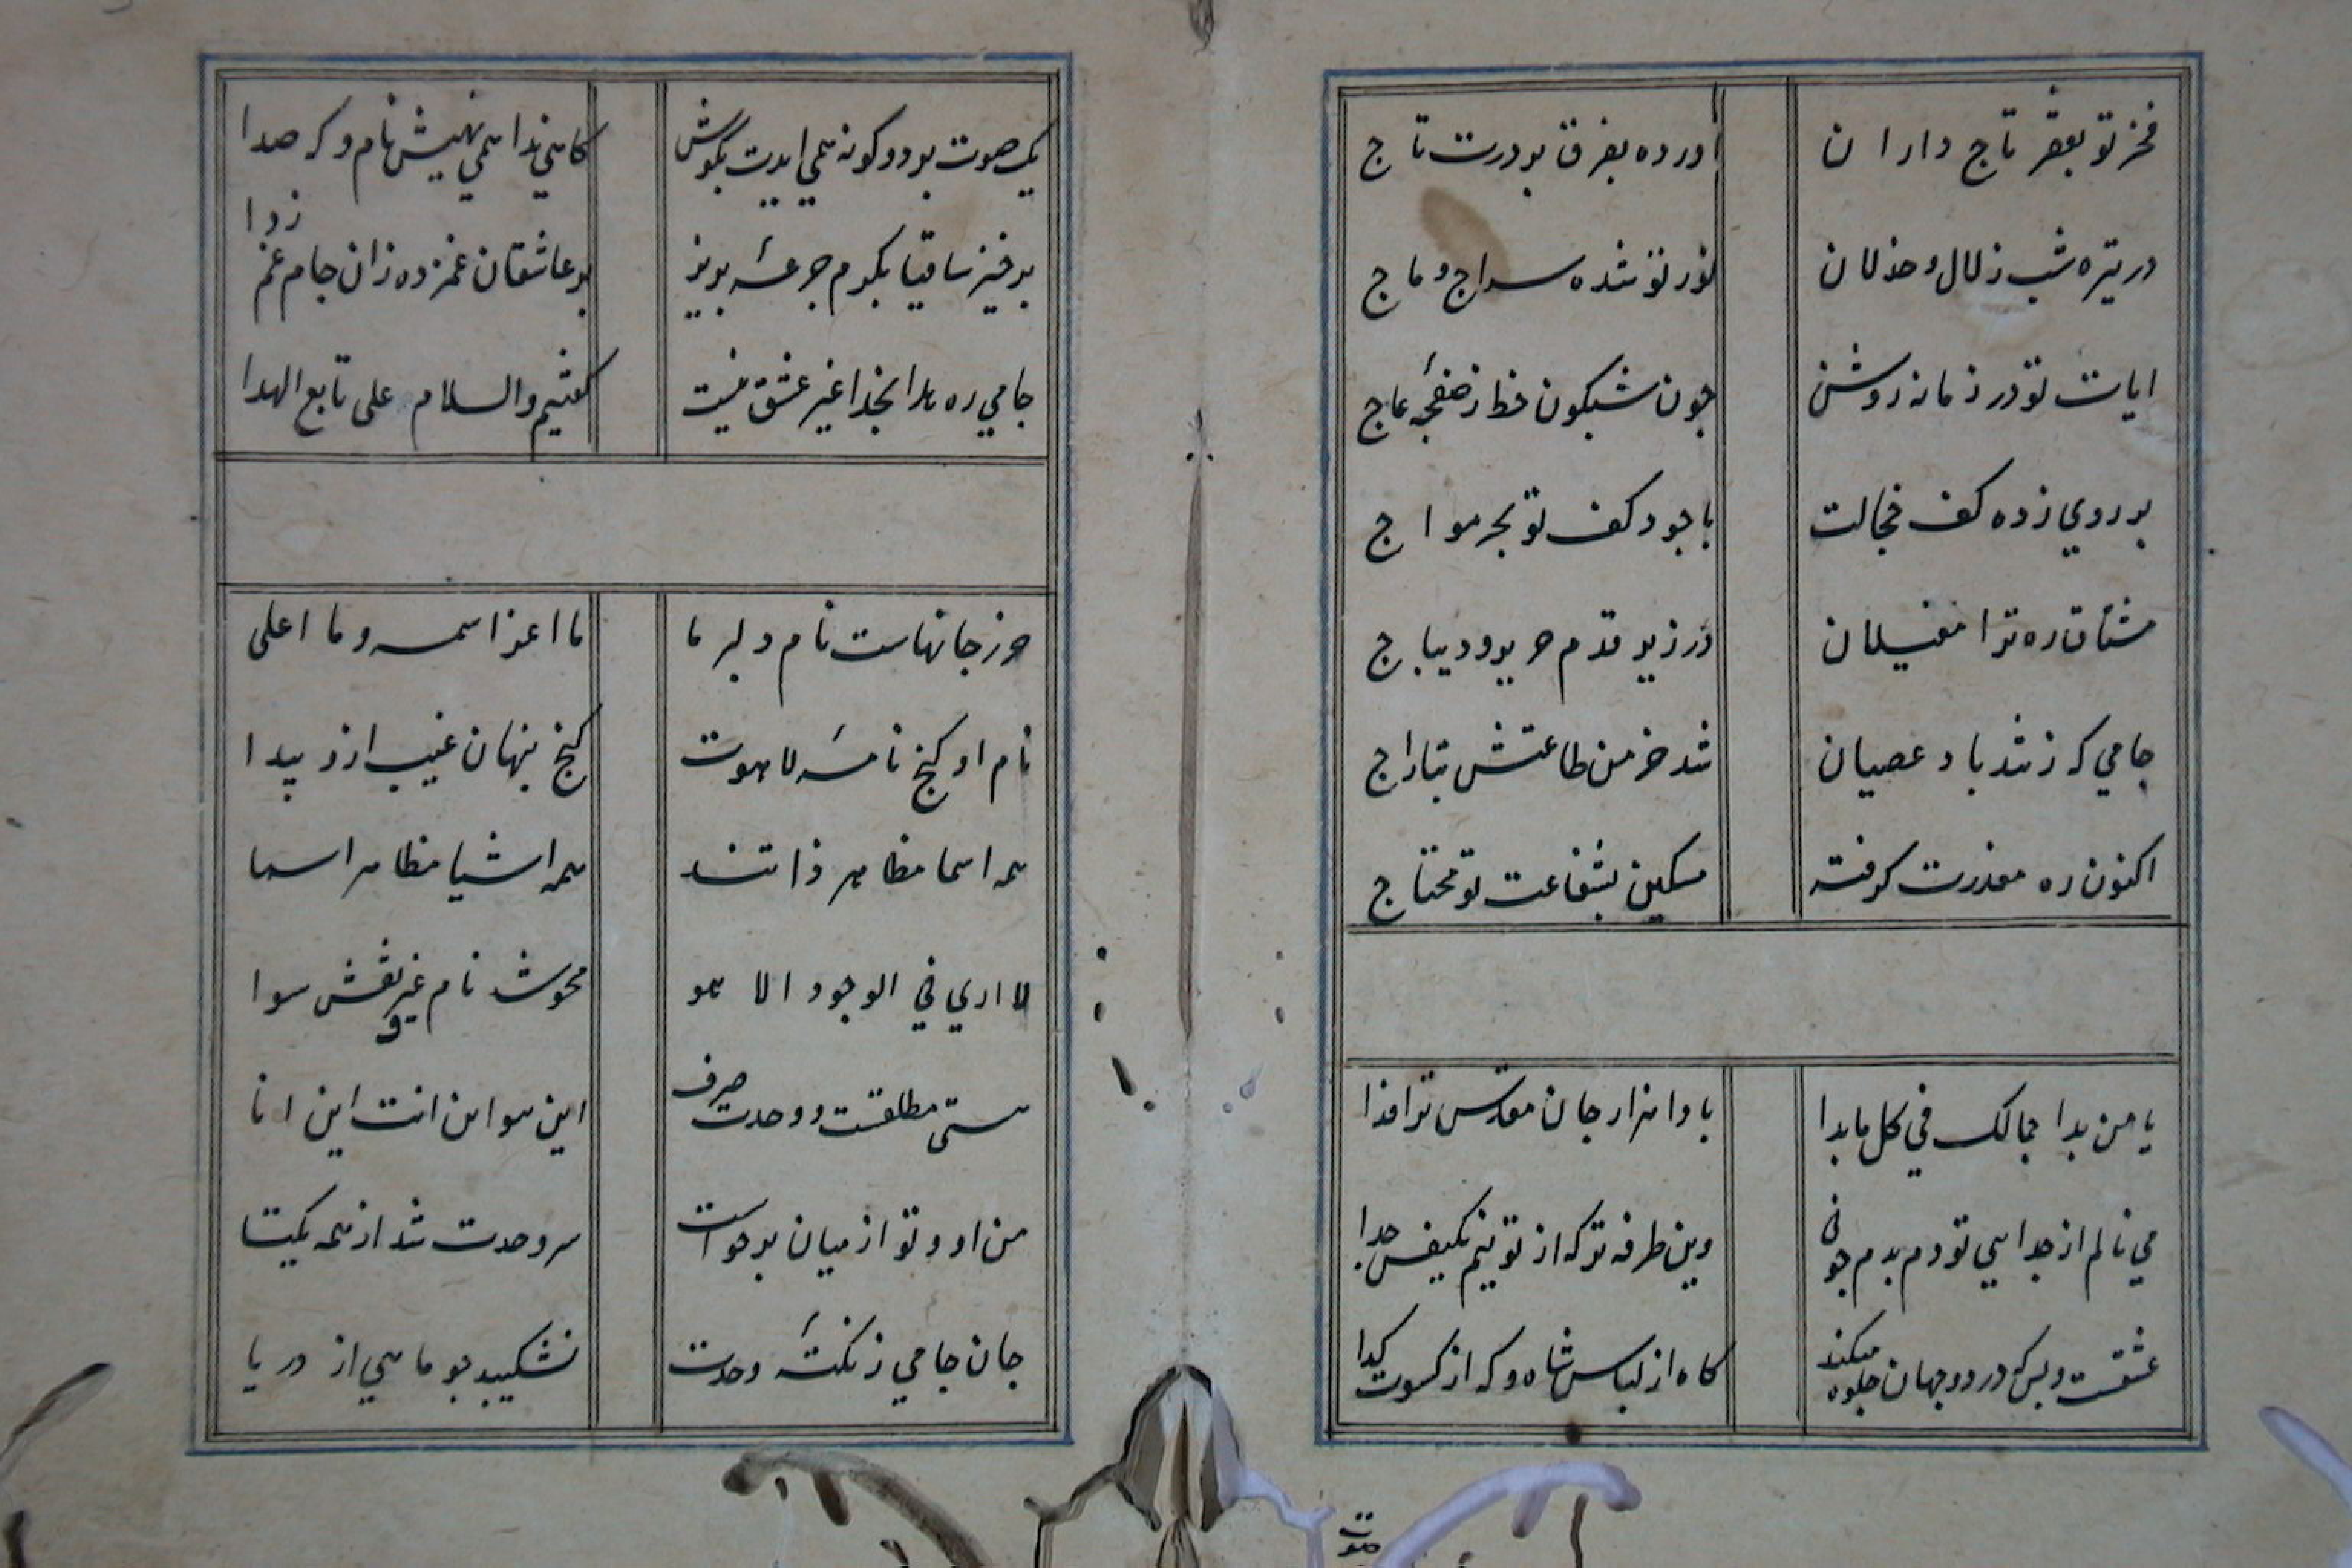 فخر تو بفقر تاج داران
اورده بفرق بودرت تاج
در تیره شب زلال و خذلان
نور تو شده سراج وهاج
ایات تو در زمانه روشن
جون شبکون خط ز صفحهٔ عاج
بر روی زده کف خجالت
با جود کف تو بحر مواج
مشتاق ره ترا مغیلان
در زیر قدم حریر و دیباج
جامی که ز تند باد عصیان
شد خرمن طاعتش بتاراج
اکنون ره معذرت کرفته
مسکین بشفاعت تو محتاج
یا من بدا جمالک في کل ما بدا
بادا هزار جان مقدس ترا فدا
می نالم از جدایی تو دم بدم جو نی
وین طرفه تر که از تو نیم یکنفس جدا
عشقست و بس که در دو جهان جلوه میکند
کاه از لباس شاه و که از کسوت کدا
یک صوت بر دو کونه همی ایدت بکوش
کاهی ندا همی نهیش نام و که صدا
برخیز ساقیا بکرم جرعهٔ بریز
بر عاشقان غمزده زان جام غم زدا
جامی ره هدا بخدا غیر عشق نیست
کفتیم والسلام علی تابع الهدا
حرز جانهاست نام دلبر ما
ما اعز اسمه وما اعلی
نام او کنج نامهٔ لاهوت
کنج پنهان غیب ازو پیدا
همه اسما مظاهر ذاتند
همه اشیا مظاهر اسما
لا اری في الوجود الا هو
محو شد نام غیر و نقش سوا
هستی مطلقست و وحدت صرف
این هو این انت این انا
من او و تو از میان برخواست
سر وحدت شد از همه یکتا
جان جامی ز نکتهٔ وحدت
نشکیبد جو ماهی از دریا